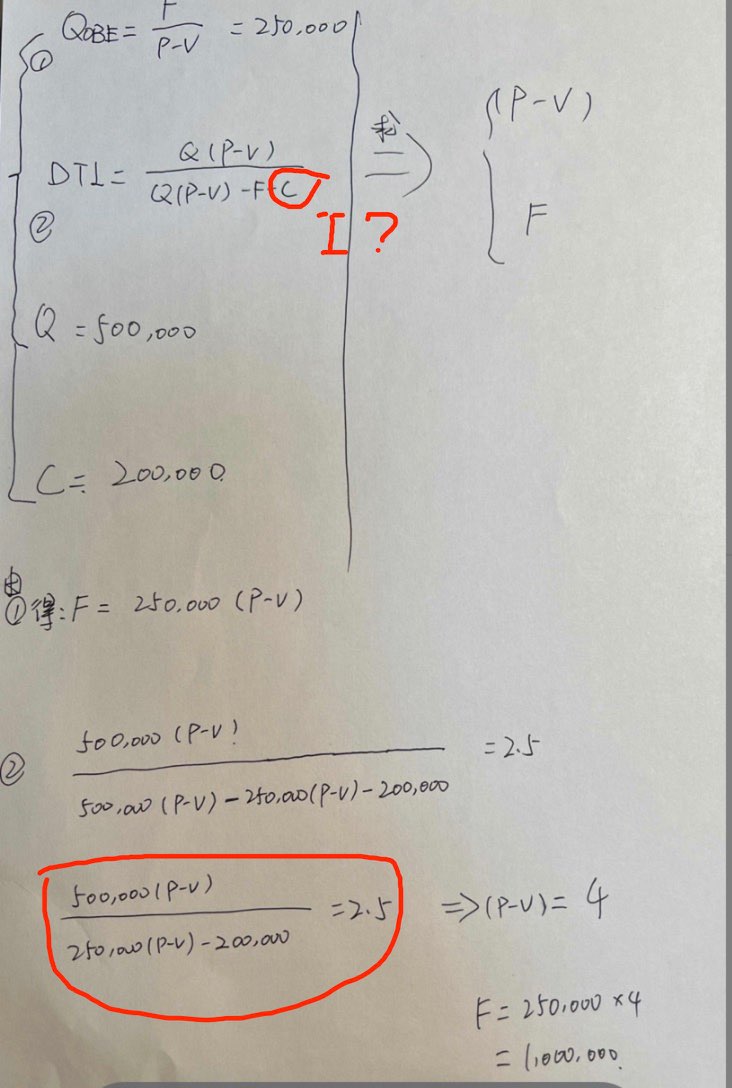 ① Q_OBE = F / P-V = 250,000
② DTL = Q(P-V) / Q(P-V) -F-C
I?
Q = 500,000
C = 200,000
求 ⇒ (P-V)
F
由①得: F = 250,000 (P-V)
② 500,000 (P-V) / 500,000 (P-V) - 250,000(P-V) - 200,000 = 2.5
500,000(P-V) / 250,000(P-V) - 200,000 = 2.5 ⇒ (P-V) = 4
F = 250,000 × 4
= 1,000,000